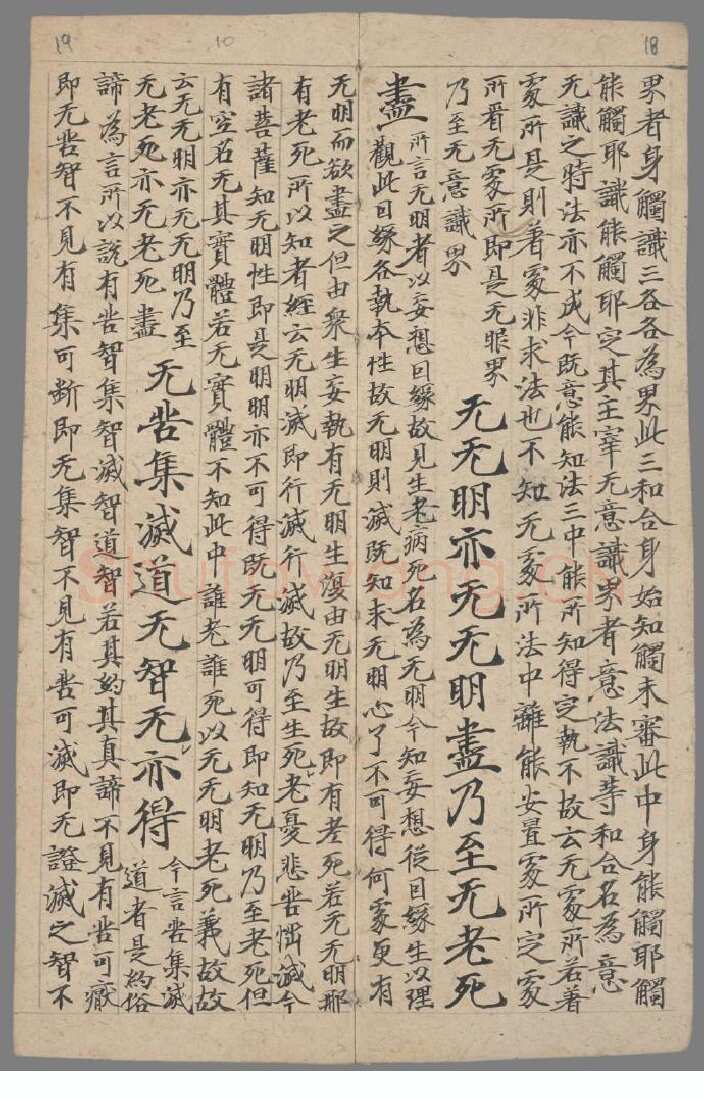 19
10
18
界者身觸識三各各為界此三和合身始知觸未審此中身能觸耶觸
能觸耶識能觸耶定其主宰无意識界者意法識等和合名為意
无識之時法亦不成今既意能知法三中能所知得定執不故云无處所若著
處所是則著處非求法也不知无處所法中離能安置處所定處
所看无處所即是无眼界
乃至无意識界 无无明亦无无明盡乃至无老死
盡 所言无明者以妄想因緣故見生老病死名為无明今知妄想從因緣生以理
觀此因緣各執本性故无明則滅既知求无明心了不可得何處更有
无明而欲盡之但由眾生妄執有无明生復由无明生故即有老死若无无明那
有老死所以知者經云无明滅即行滅行滅故乃至生死老憂悲苦惱滅今
諸菩薩知无明性即是明明亦不可得既无无明可得即知无明乃至老死但
有空名无其實體若无實體不知此中誰老誰死以无无明老死義故故
云无无明亦无无明乃至
无老死亦无老死盡 无苦集滅道无智无亦得 今言苦集滅
道者是約俗
諦為言所以說有苦智集智滅智道智若其約其真諦不見有苦可厭
即无苦智不見有集可斷即无集智不見有苦可滅即无證滅之智不